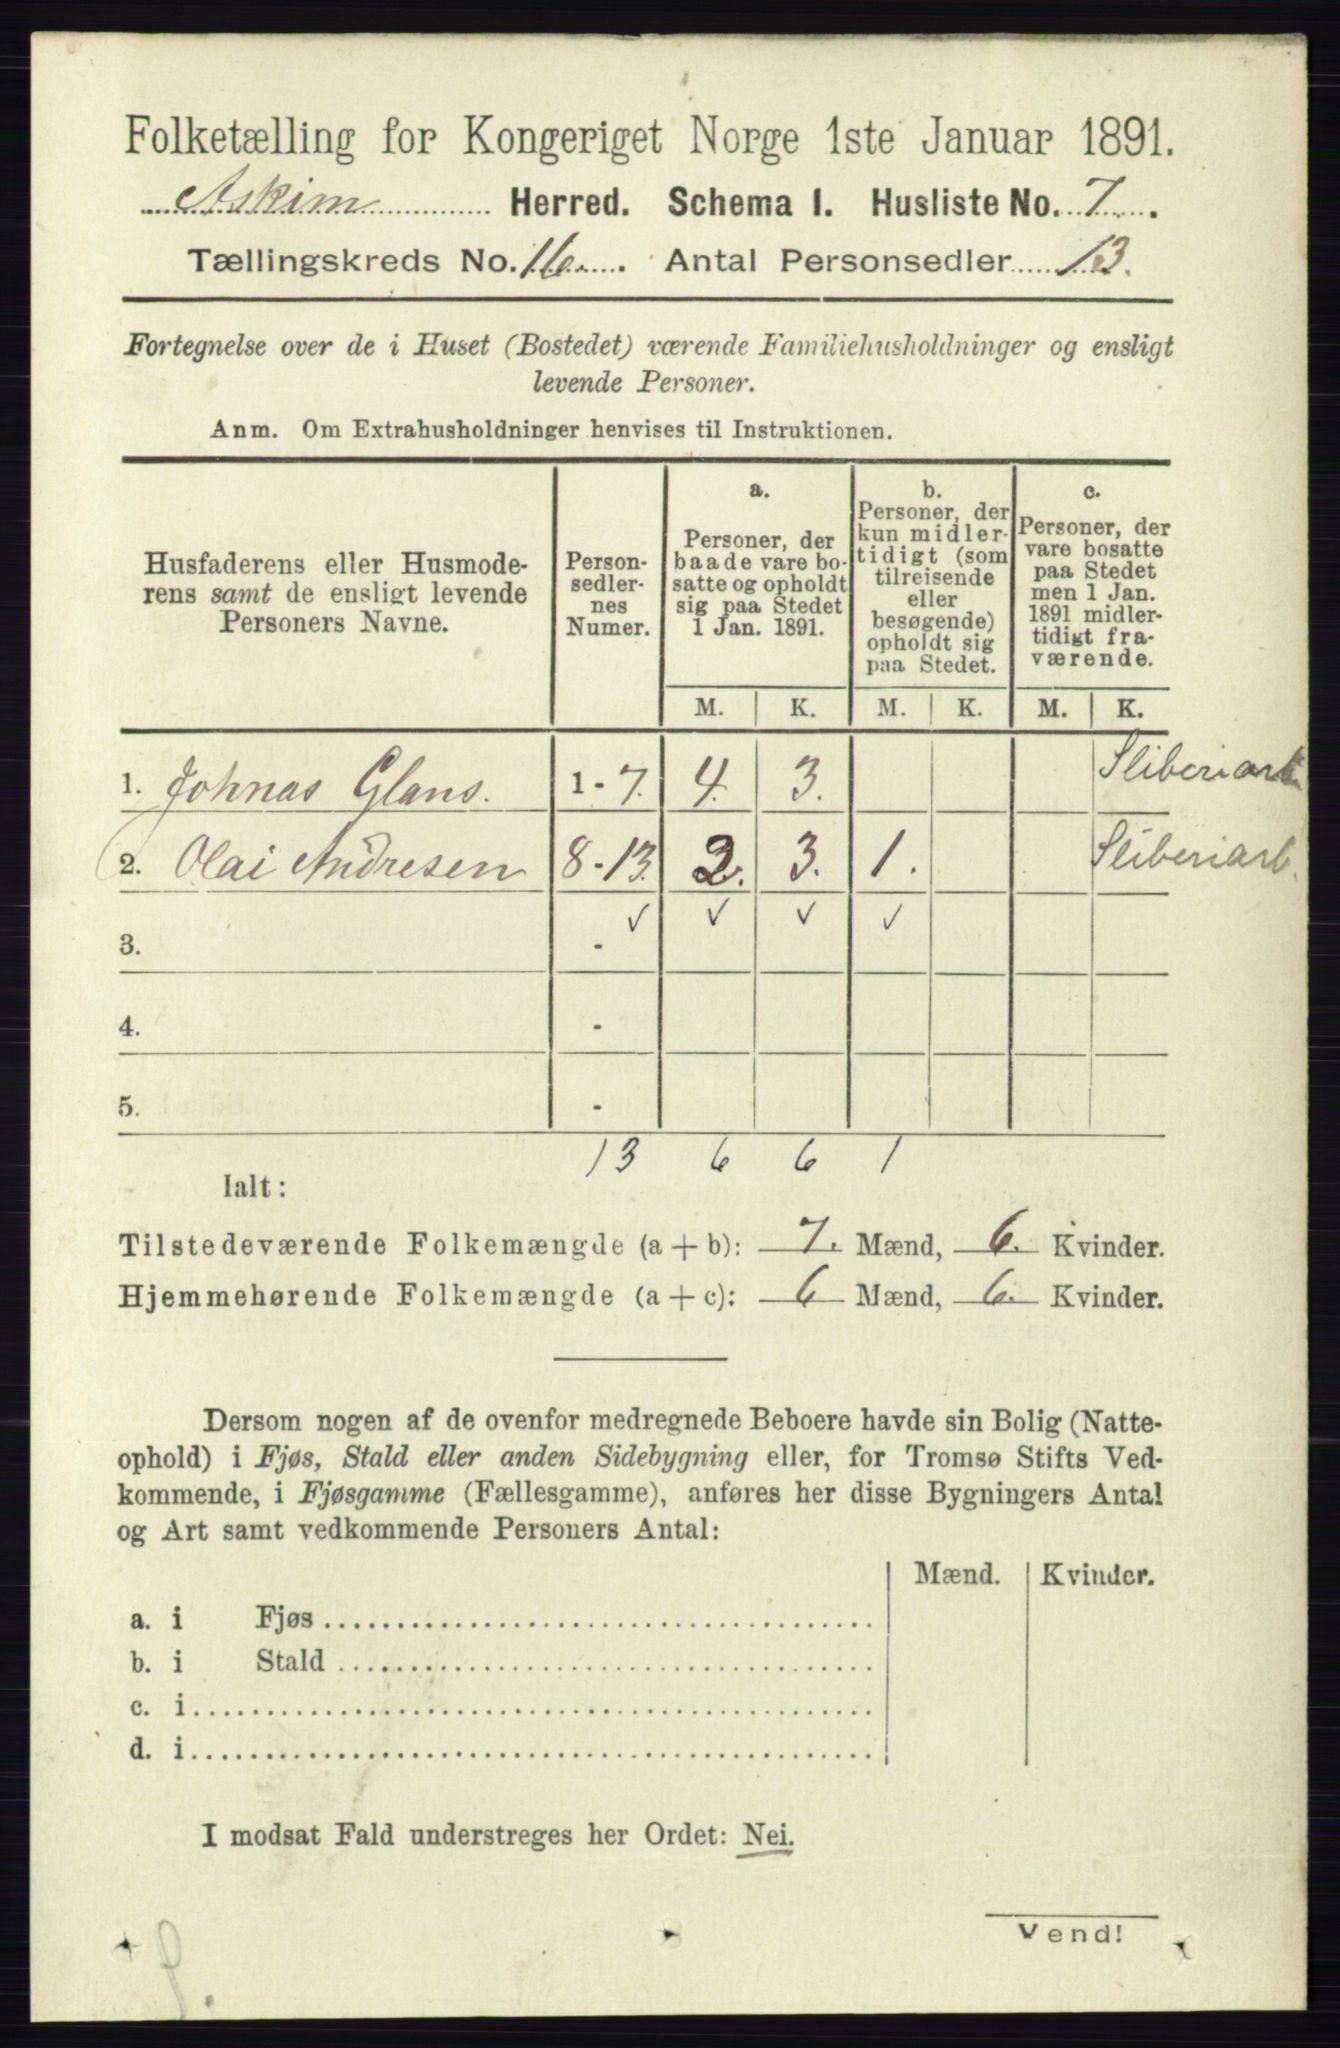 Folketælling for Kongeriget Norge 1ste Januar 1891.
Askim Herred. Schema I. Husliste No. 7.
Tællingskreds No. 16. Antal Personsedler 13.
Fortegnelse over de i Huset (Bostedet) værende Familiehusholdninger og ensligt
levende Personer.
Anm. Om Extrahusholdninger henvises til Instruktionen.
Husfaderens eller Husmode-
rens samt de ensligt levende
Personers Navne.
Person-
sedler-
nes
Numer.
a.
Personer, der
baade vare bo-
satte og opholdt
sig paa Stedet
1 Jan. 1891.
b.
Personer, der
kun midler-
tidigt (som
tilreisende
eller
besøgende)
opholdt sig
paa Stedet.
c.
Personer, der
vare bosatte
paa Stedet
men 1 Jan.
1891 midler-
tidigt fra-
værende.
M. K. M. K. M. K.
1. Johnas Glans. 1 - 7. 4. 3. Sliberiarb
2. Olai Andresen 8 - 13. 2. 3. 1. Sliberiarb.
3. - ✓ ✓ ✓ ✓
4. -
5. -
13 6 6 1
Ialt:
Tilstedeværende Folkemængde (a + b): 7. Mænd, 6. Kvinder.
Hjemmehørende Folkemængde (a + c): 6 Mænd, 6. Kvinder.
Dersom nogen af de ovenfor medregnede Beboere havde sin Bolig (Natte-
ophold) i Fjøs, Stald eller anden Sidebygning eller, for Tromsø Stifts Ved-
kommende, i Fjøsgamme (Fællesgamme), anføres her disse Bygningers Antal
og Art samt vedkommende Personers Antal:
Mænd. Kvinder.
a. i Fjøs
b. i Stald
c. i
d. i
I modsat Fald understreges her Ordet: Nei.
Vend!